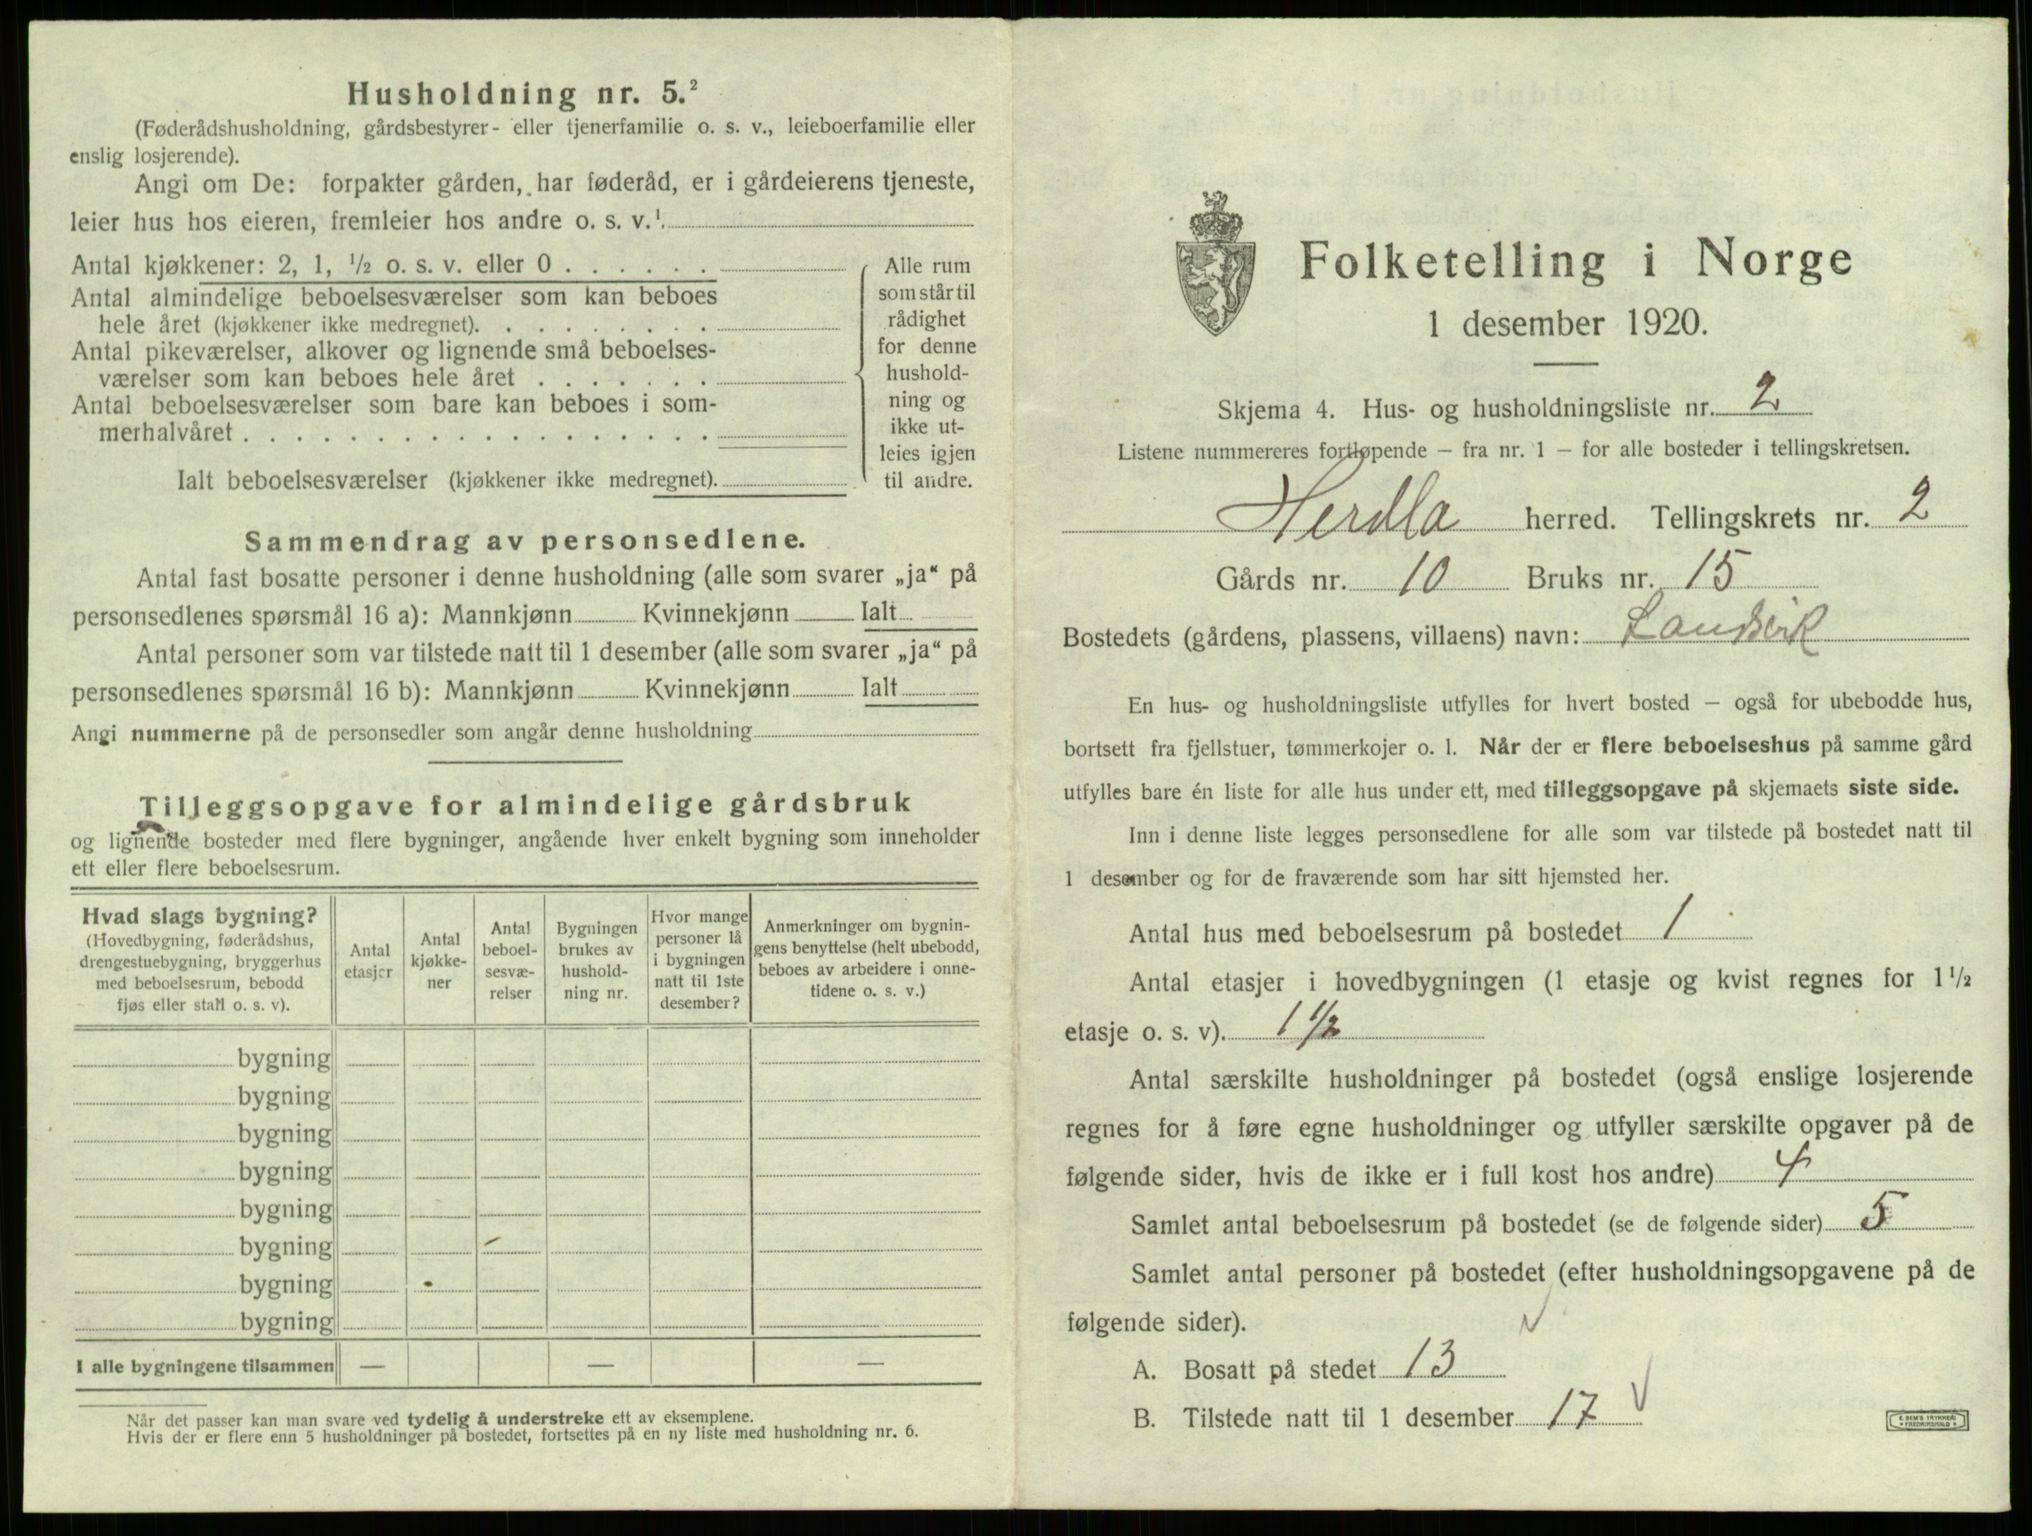 Husholdning nr. 5.²
(Føderådshusholdning, gårdsbestyrer- eller tjenerfamilie o. s. v., leieboerfamilie eller
enslig losjerende).
Angi om De: forpakter gården, har føderåd, er i gårdeierens tjeneste,
leier hus hos eieren, fremleier hos andre o. s. v.¹
Antal kjøkkener: 2, 1, ½ o. s. v. eller 0 . . . . . .
Antal almindelige beboelsesværelser som kan beboes
hele året (kjøkkener ikke medregnet). . . . . . . . .
Antal pikeværelser, alkover og lignende små beboelses-
værelser som kan beboes hele året . . . . . . .
Antal beboelsesværelser som bare kan beboes i som-
merhalvåret . . . . . . . . . . . . . . . . . .
Ialt beboelsesværelser (kjøkkener ikke medregnet).
Alle rum
som står til
rådighet
for denne
hushold-
ning og
ikke ut-
leies igjen
til andre.
Sammendrag av personsedlene.
Antal fast bosatte personer i denne husholdning (alle som svarer „ja“ på
personsedlenes spørsmål 16 a): Mannkjønn Kvinnekjønn Ialt
Antal personer som var tilstede natt til 1 desember (alle som svarer „ja“ på
personsedlenes spørsmål 16 b): Mannkjønn Kvinnekjønn Ialt
Angi nummerne på de personsedler som angår denne husholdning
Tilleggsopgave for almindelige gårdsbruk
og lignende bosteder med flere bygninger, angående hver enkelt bygning som inneholder
ett eller flere beboelsesrum.
Hvad slags bygning?
(Hovedbygning, føderådshus,
drengestuebygning, bryggerhus
med beboelsesrum, bebodd
fjøs eller stall o. s. v).
Antal
etasjer
Antal
kjøkke-
ner
Antal
beboel-
sesvæ-
relser
Bygningen
brukes av
hushold-
ning nr.
Hvor mange
personer lå
i bygningen
natt til 1ste
desember?
Anmerkninger om bygnin-
gens benyttelse (helt ubebodd,
beboes av arbeidere i onne-
tidene o. s. v.)
bygning
bygning
bygning
bygning
bygning
bygning
bygning
bygning
I alle bygningene tilsammen — — —
Når det passer kan man svare ved tydelig å understreke ett av eksemplene.
Hvis der er flere enn 5 husholdninger på bostedet, fortsettes på en ny liste med husholdning nr. 6.
Folketelling i Norge
1 desember 1920.
Skjema 4. Hus- og husholdningsliste nr. 2
Listene nummereres fortløpende — fra nr. 1 — for alle bosteder i tellingskretsen.
Herdla herred. Tellingskrets nr. 2
Gårds nr. 10 Bruks nr. 15
Bostedets (gårdens, plassens, villaens) navn:
En hus- og husholdningsliste utfylles for hvert bosted — også for ubebodde hus,
bortsett fra fjellstuer, tømmerkojer o. l. Når der er flere beboelseshus på samme gård
utfylles bare én liste for alle hus under ett, med tilleggsopgave på skjemaets siste side.
Inn i denne liste legges personsedlene for alle som var tilstede på bostedet natt til
1 desember og for de fraværende som har sitt hjemsted her.
Antal hus med beboelsesrum på bostedet 1
Antal etasjer i hovedbygningen (1 etasje og kvist regnes for 1 ½
etasje o. s. v). 1 ½
Antal særskilte husholdninger på bostedet (også enslige losjerende
regnes for å føre egne husholdninger og utfyller særskilte opgaver på de
følgende sider, hvis de ikke er i full kost hos andre) 4
Samlet antal beboelsesrum på bostedet (se de følgende sider) 5
Samlet antal personer på bostedet (efter husholdningsopgavene på de
følgende sider).
A. Bosatt på stedet 13
B. Tilstede natt til 1 desember 17